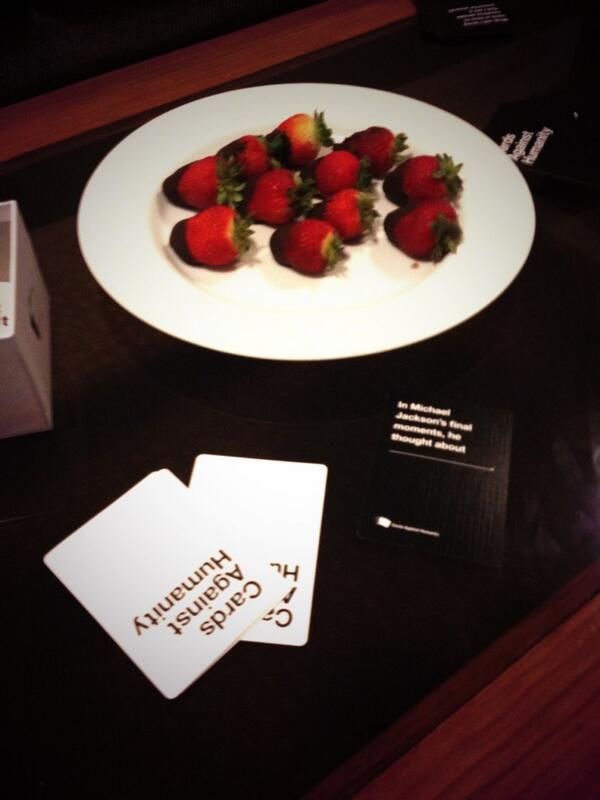 ards
Against
Humanity
In Michael
Jackson's final
moments, he
thought about
Cards Against Humanity
Cards
Against
Humanity
Ca
H